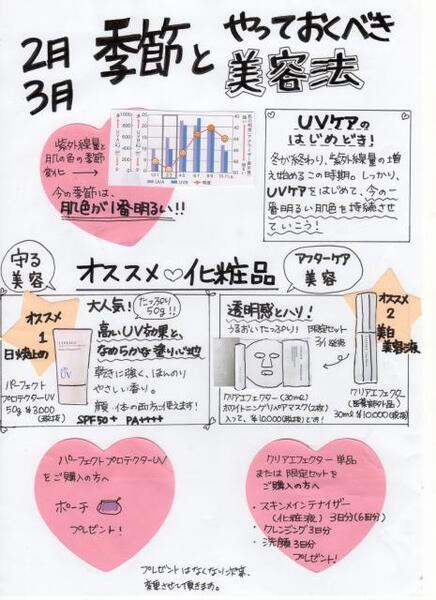 2月
3月
季節と
やっておくべき
美容法
紫外線量と
肌の色の季節
変化
今の季節は、
肌色が1番明るい!!
UVA
UVB
明度
UVケアの
はじめどき!
冬が終わり、紫外線量の増
え始めるこの時期。しっかり、
UVケアをはじめて、今の一
番明るい肌色を持続させ
ていこう!
守る
美容
オススメ♡化粧品
アフターケア
美容
オススメ
1
日焼止め
UV
パーフェクト
プロテクターUV
50g ¥3,000
(税抜)
大人気!
たっぷり
50g!!
高いUV効果と、
なめらかな塗り心地
乾きに強く、ほんのり
やさしい香り。
顔・体の両方に使えます!
SPF50+ PA++++
透明感とハリ!
うるおいたっぷり!
限定セット
3/1発売
クリアエフェクター(30ml)
ホワイトニングリペアマスク(2枚)
入って、¥10,000(税抜)とお得!
オススメ
2
美白
美容液
クリアエフェクター
(医薬部外品)
30ml ¥10,000(税抜)
パーフェクトプロテクターUV
をご購入の方へ
ポーチ
プレゼント!
クリアエフェクター 単品
または 限定セットを
ご購入の方へ
・スキンメインテナイザー
(化粧液) 3日分(6回分)
・クレンジング3日分
・洗顔3日分
プレゼント!
プレゼントはなくなり次第、
変更させて頂きます。